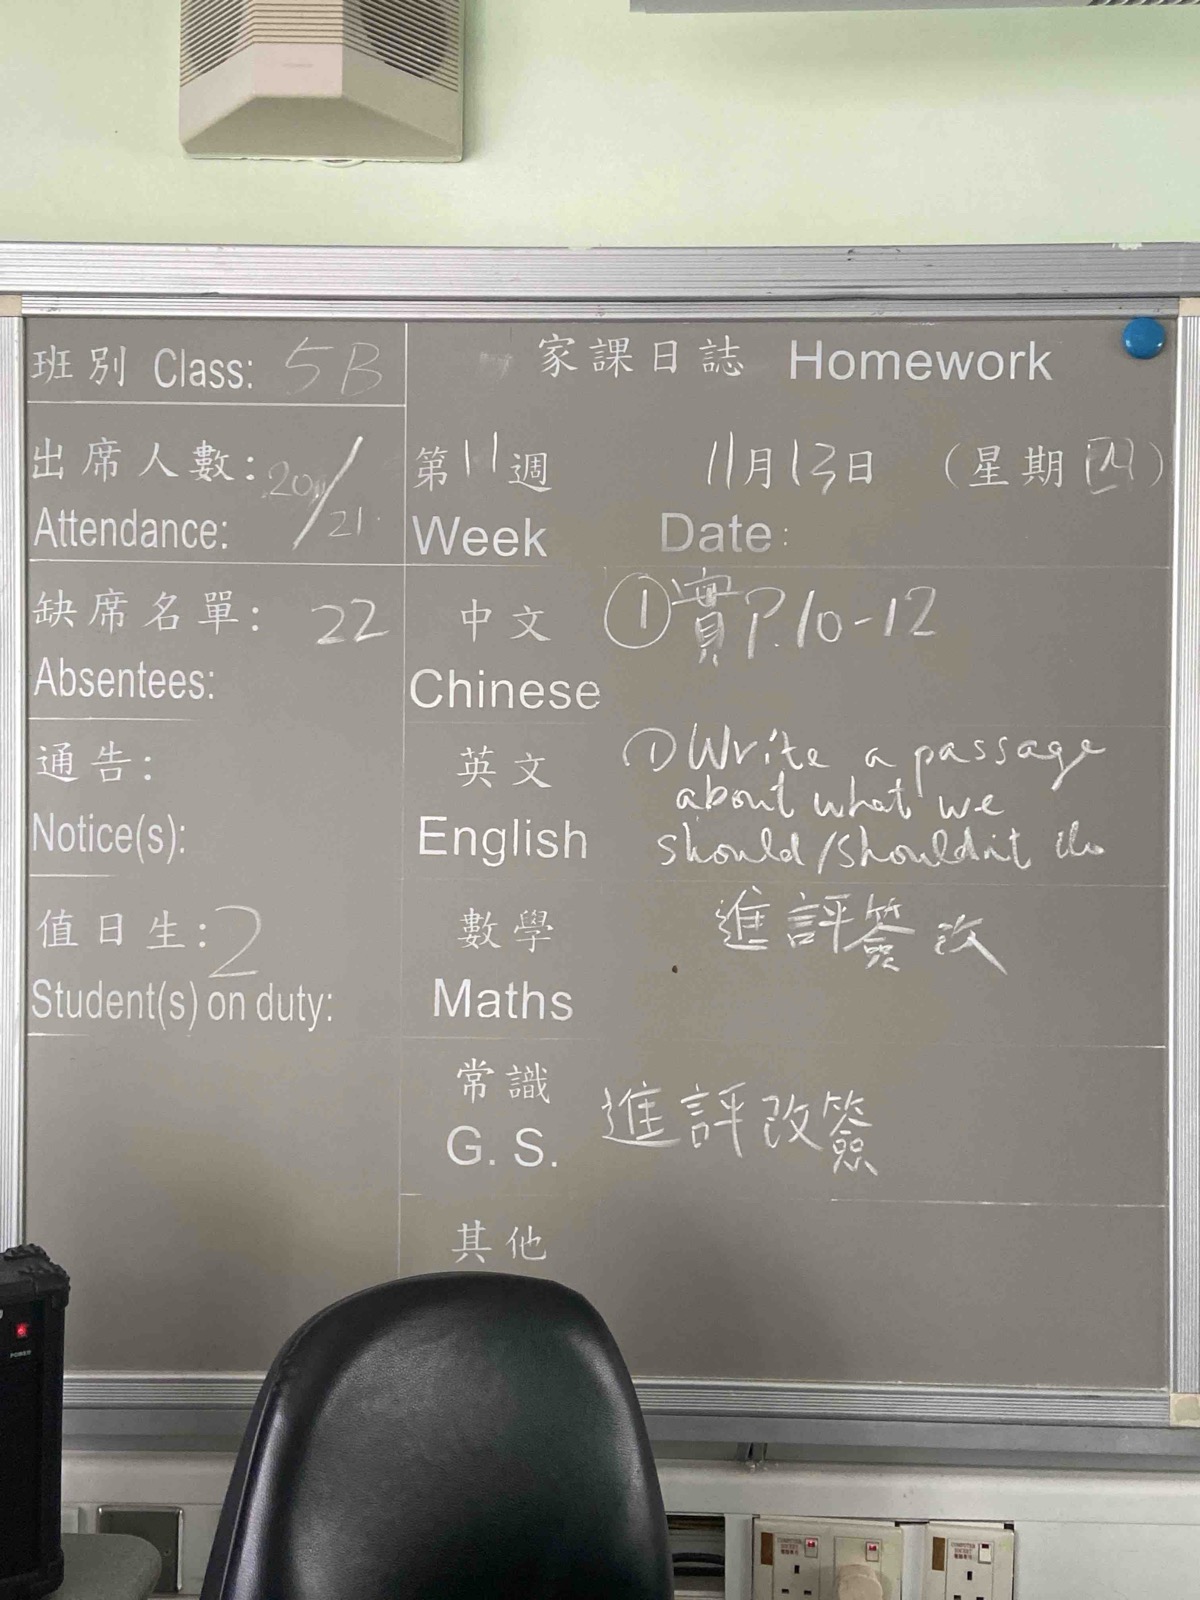 班別 Class: 5B
出席人數: 20/21
Attendance:
缺席名單: 22
Absentees:
通告:
Notice(s):
值日生: 2
Student(s) on duty:
家課日誌 Homework
第11週 11月13日 (星期四)
Week Date:
中文 ①實P.10-12
Chinese
英文 ①Write a passage
about what we
English should/shouldn't do
數學 進評簽改
Maths
常識 進評改簽
G. S.
其他
POWER